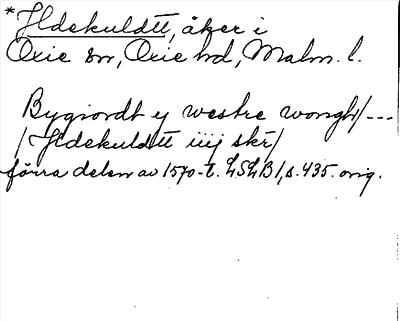 * Ildekuldtt, åker i
Oxie sn, Oxie hd, Malm. l.
Bygiordt ij westre wongh/---
/Ildekuldtt iiij skr/
förra delen av 1570-t. LSLB 1, s. 435. orig.